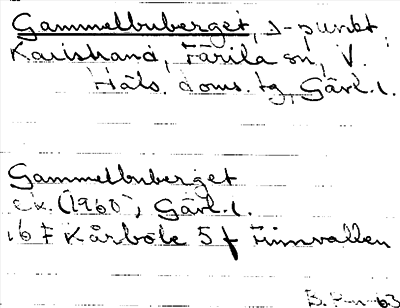 Gammelbuberget, Δ-punkt,
Karsstrand, Färila sn, V.
Häls. doms. tg, Gävl. l.
Gammelbuberget
ek. (1960), Gävl. l.
16 F Kårböle 5 f Finnvallen
63